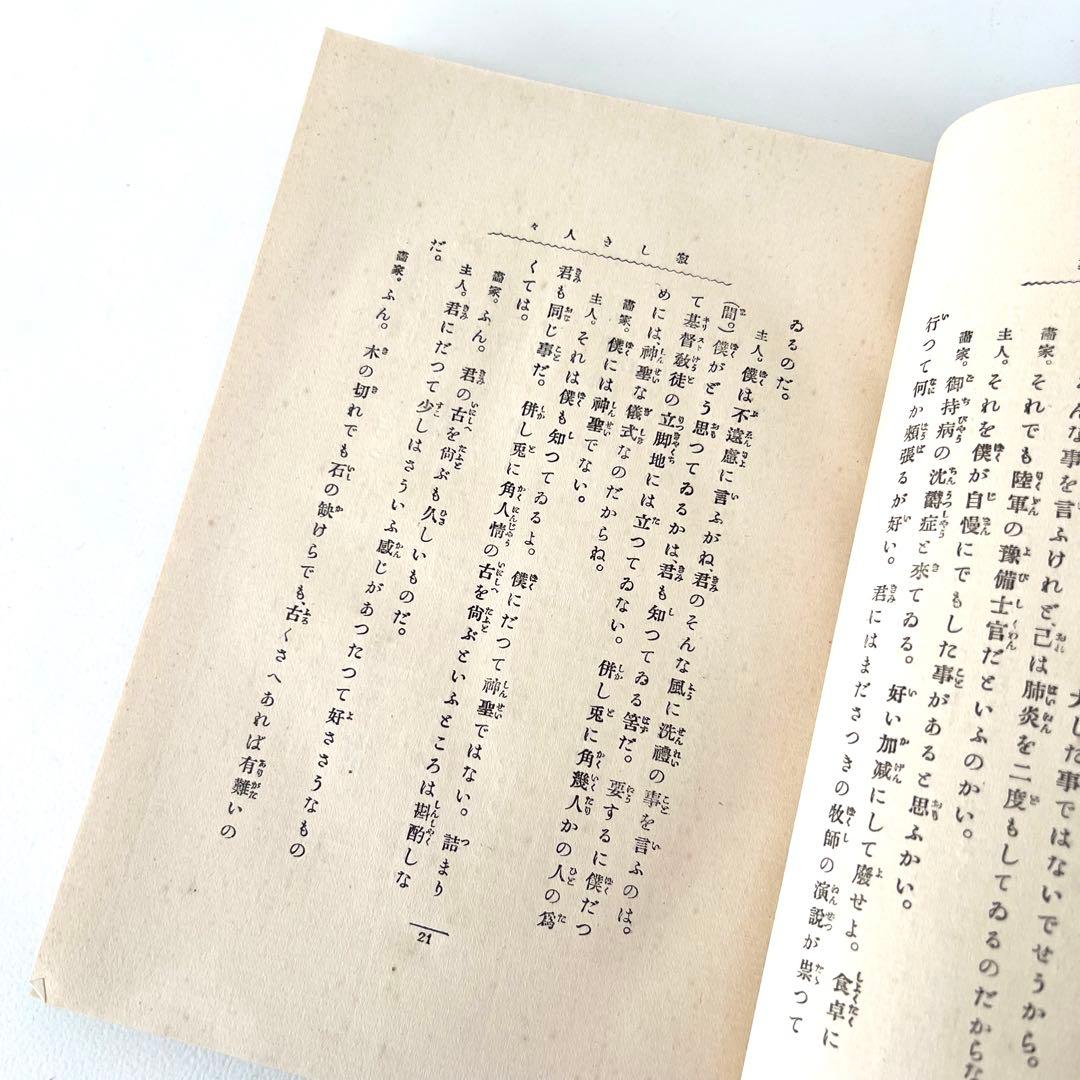 大した事ではないでせうから。
んな事を言ふけれど、己は肺炎を二度もしてゐるのだからな
畵家。それでも陸軍の豫備士官だといふのかい。
主人。それを僕が自慢にでもした事があると思ふかい。
畵家。御持病の沈鬱症と來てゐる。好い加减にして廢せよ。食卓に
行つて何か頬張るが好い。君にはまださつきの牧師の演説が祟つて
寂しき人々
ゐるのだ。
主人。僕は不遠慮に言ふがね、君のそんな風に洗禮の事を言ふのは。
(間。)僕がどう思つてゐるかは、君も知つてゐる筈だ。要するに僕だつ
て基督敎徒の立脚地には立つてゐない。併し兎に角幾人かの人の爲
めには神聖な儀式なのだからね。
畵家。僕には神聖でない。
主人。それは僕も知つてゐるよ。僕にだつて神聖ではない。詰まり
君も同じ事だ。併し兎に角人情の古を尙ぶといふところは斟酌しな
くては。
畵家。ふん。君の古を尙ぶも久しいものだ。
主人。君にだつて少しはさういふ感じがあつたつて好ささうなもの
だ。
畵家。ふん。木の切れでも石の缺けらでも、古くさへあれば有難いの
21